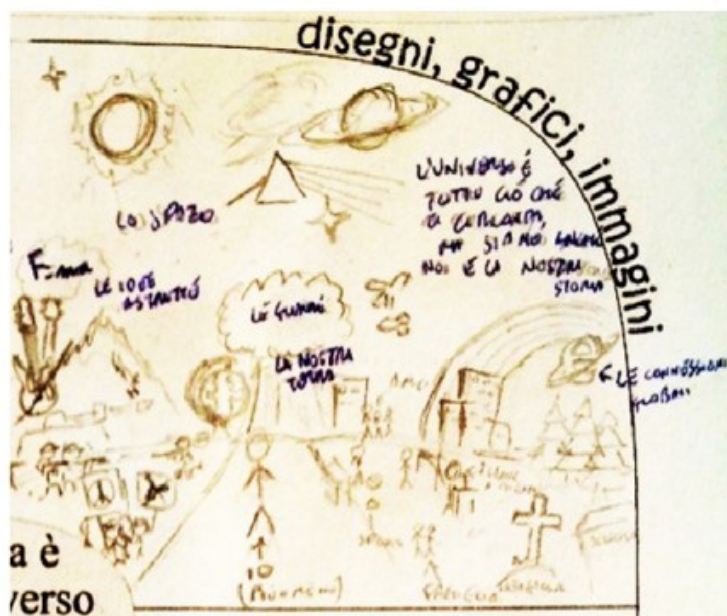 disegni, grafici, immagini
LO SPAZIO
L'UNIVERSO È
TUTTO CIÒ CHE
CI CIRCONDA,
MA SIAMO ANCHE
NOI È LA NOSTRA
STORIA
LE IDEE
ASTRATTE
LE GUERRE
LA NOSTRA
TERRA
LE CONNESSIONI
GLOBALI
IO
FAMIGLIA
a è
verso